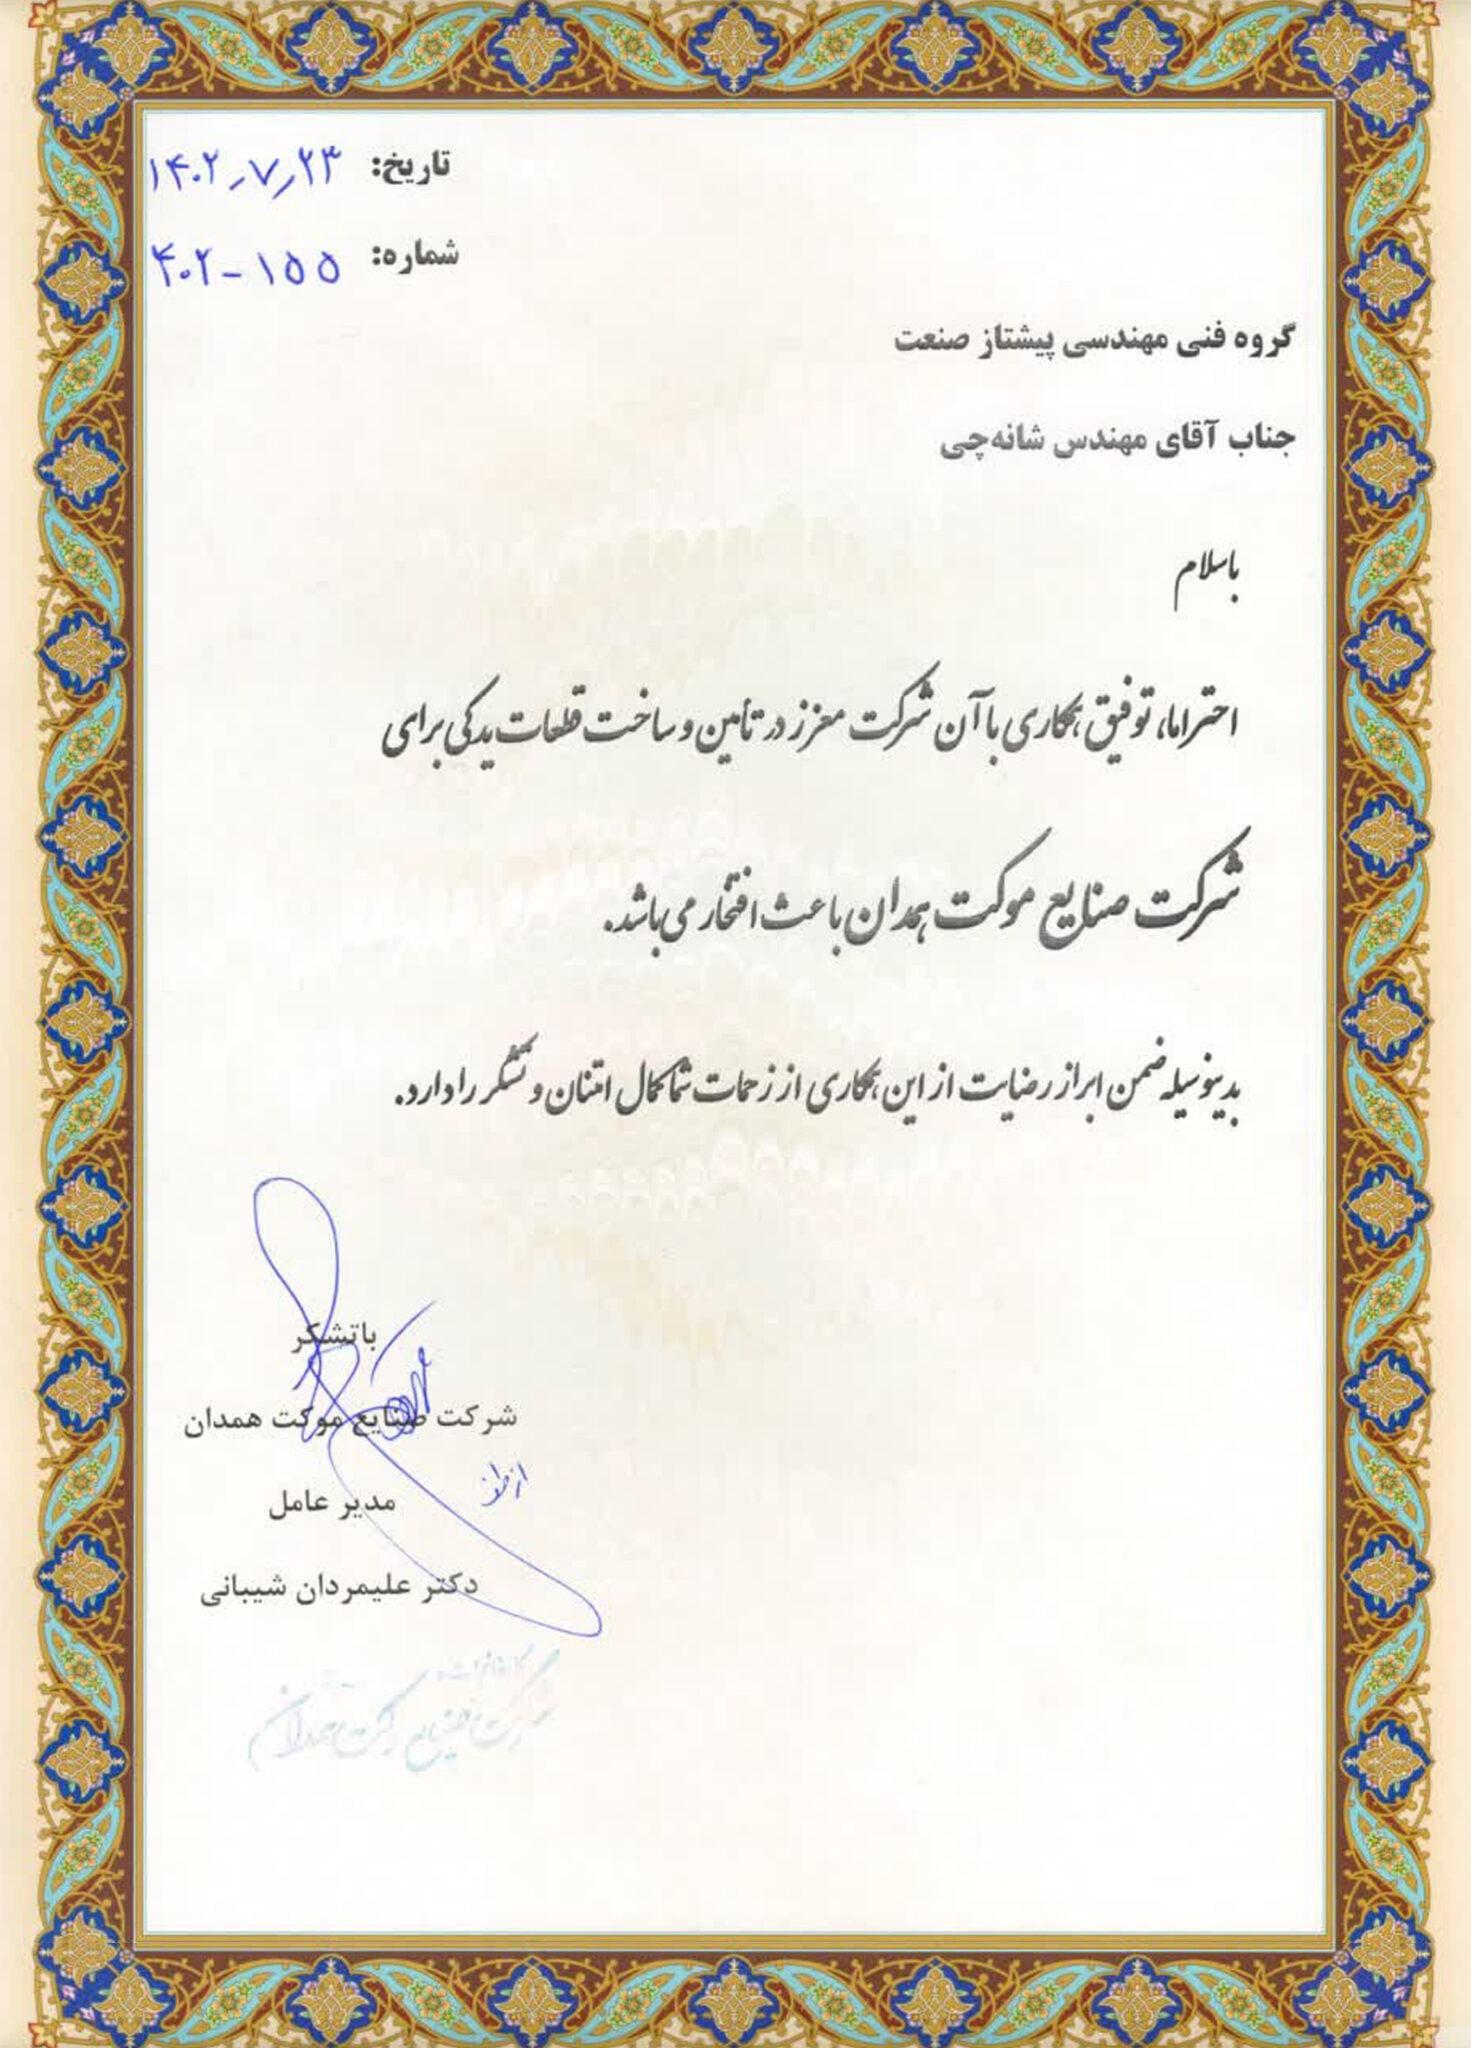 تاریخ: ۱۴۰۲٫۷٫۲۳
شماره: ۴۰۲-۱۵۵
گروه فنی مهندسی پیشتاز صنعت
جناب آقای مهندس شانه‌چی
باسلام
احتراما، توفیق همکاری با آن شرکت معزز در تأمین و ساخت قطعات یدکی برای
شرکت صنایع موکت همدان باعث افتخار می‌باشد.
بدینوسیله ضمن ابراز رضایت از این همکاری از زحمات شما کمال امتنان و تشکر را دارد.
باتشکر
شرکت صنایع موکت همدان
از طرف
مدیر عامل
دکتر علیمردان شیبانی